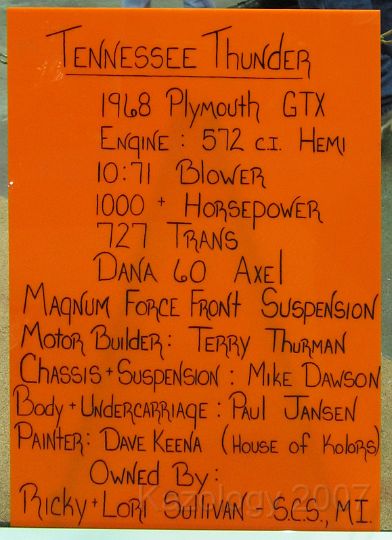 Tennessee Thunder
1968 Plymouth GTX
Engine: 572 c.i. Hemi
10:71 Blower
1000 + Horsepower
727 Trans
Dana 60 Axel
Magnum Force Front Suspension
Motor Builder: Terry Thurman
Chassis + Suspension: Mike Dawson
Body + Undercarriage: Paul Jansen
Painter: Dave Keena (House of Kolors)
Owned By:
Ricky + Lori Sullivan - S.C.S., MI.
Kozology 2007